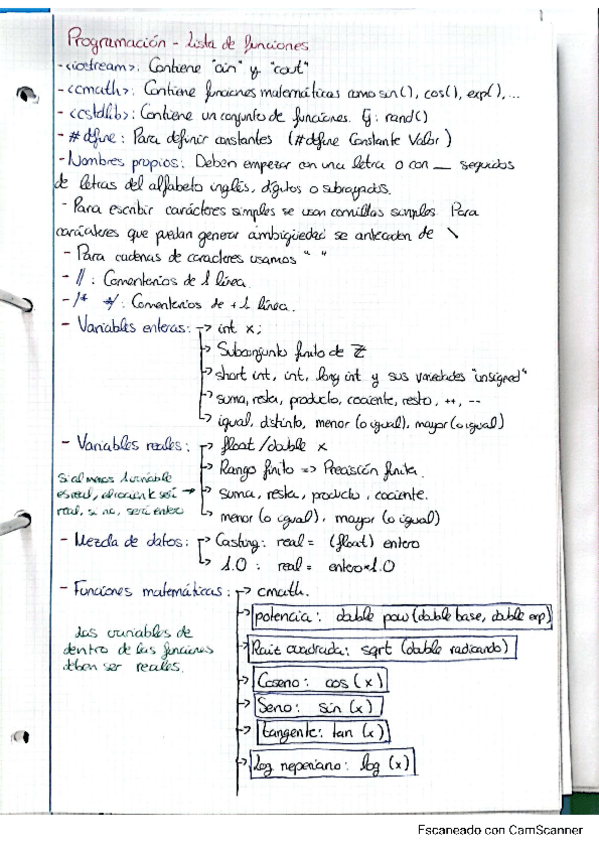 Programación - Lista de funciones
- <iostream>: Contiene "cin" y "cout"
- <cmath>: Contiene funciones matemáticas como sin(), cos(), exp(), ...
- <cstdlib>: Contiene un conjunto de funciones. Ej: rand()
- #define: Para definir constantes (#define Constante Valor)
- Nombres propios: Deben empezar con una letra o con _ seguidos
de letras del alfabeto inglés, dígitos o subrayados.
- Para escribir carácteres simples se usan comillas simples. Para
carácteres que puedan generar ambigüedad se anteceden de \
- Para cadenas de caracteres usamos " "
- // : Comentarios de 1 línea.
- /* */ : Comentarios de +1 línea.
- Variables enteras: → int x;
→ Subconjunto finito de Z
→ short int, int, long int y sus variedades "unsigned"
→ suma, resta, producto, cociente, resto, ++, --
→ igual, distinto, menor (o igual), mayor (o igual)
- Variables reales: → float/double x
→ Rango finito => Precisión finita.
Si al menos 1 variable
es real, el cociente será → suma, resta, producto, cociente.
real, si no, será entero
→ menor (o igual), mayor (o igual)
- Mezcla de datos: → Casting: real = (float) entero
→ 1.0 : real = entero*1.0
- Funciones matemáticas: → cmath.
→ potencia: double pow (double base, double exp)
Las variables de
dentro de las funciones
deben ser reales.
→ Raiz cuadrada: sqrt (double radicando)
→ Coseno: cos (x)
→ Seno: sin (x)
→ tangente: tan (x)
→ Log neperiano: log (x)
Escaneado con CamScanner